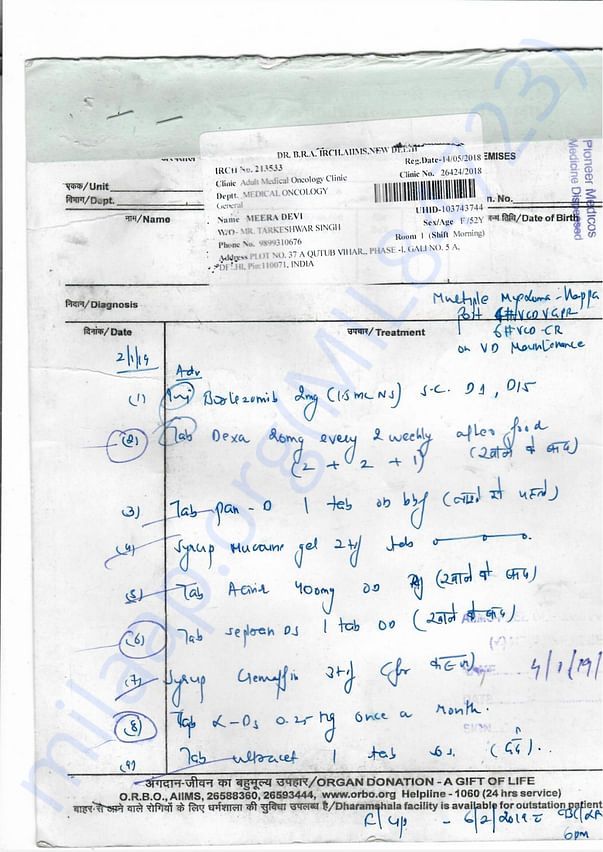 Pioneer Medicos
Medicine Dispensed
DR. B.R.A. IRCH,AIIMS,NEW DELHI
IRCH No. 213533
Reg.Date-14/05/2018
EMISES
Clinic Adult Medical Oncology Clinic
Clinic No. 26424/2018
एकक/Unit
Deptt. MEDICAL ONCOLOGY
विभाग/Dept.
General
n. No.
UHID-103743744
नाम/Name
Name MEERA DEVI
Sex/Age F/52Y
न्म तिथि/Date of Birth
W/O- MR. TARKESHWAR SINGH
Room 1 (Shift Morning)
Phone No. 9899310676
Address PLOT NO. 37 A QUTUB VIHAR., PHASE -I, GALI NO. 5 A,
DELHI, Pin:110071, INDIA
निदान/Diagnosis
Multiple Myeloma - Kappa
VCD VGPR
6#VCD-CR
on VD Maintenance
दिनांक/Date
उपचार/Treatment
2/1/19
Adv
(1) Inj Bortezomib 2mg (1.5 ml NS) S.C. D1, D15
(2) Tab Dexa 20mg every 2 weekly after food
(2 + 2 + 1) (खाने के बाद)
(3) Tab pan-D 1 tab OD bbf (खाने से पहले)
(4) Syrup Mucaine gel 2tsf tds
(5) Tab Acivir 400mg OD (खाने के बाद)
(6) Tab septran DS 1 tab OD (खाने के बाद)
(7) Syrup Cremaffin 3tsf कब्ज
4/1/19
(8) Tab α-D3 0.25 mg once a month.
(9) Tab ultracet 1 tab sos (दर्द)..
अंगदान-जीवन का बहुमूल्य उपहार/ORGAN DONATION - A GIFT OF LIFE
O.R.B.O., AIIMS, 26588360, 26593444, www.orbo.org Helpline - 1060 (24 hrs service)
बाहर से आने वाले रोगियों के लिए धर्मशाला की सुविधा उपलब्ध है/Dharamshala facility is available for outstation patient
F/up - 6/2/2019 CBC/
6pm